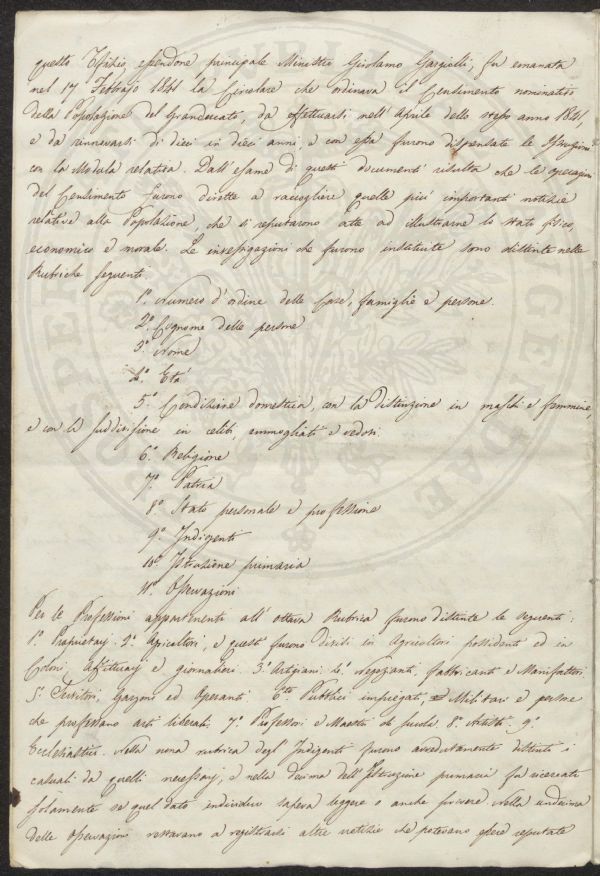 questo Ufizio essendone principale Ministro Girolamo Gargiolli, fu emanata
nel 17 Febbrajo 1841 la Circolare che ordinava il Censimento nominativo
della Popolazione del Granducato, da effettuarsi nell'Aprile dello stesso anno 1841,
e da rinnovarsi di dieci in dieci anni, e con essa furono dispensate le Istruzioni
con la Modula relativa. Dall'esame di questi documenti risulta che le operazioni
del Censimento furono dirette a raccogliere quelle più importanti notizie
relative alla Popolazione, che si reputarono atte ad illustrarne lo stato fisico,
economico e morale. Le investigazioni che furono instituite sono distinte nelle
Rubriche seguenti.
1º. Numero d'ordine delle Case, famiglie e persone.
2º. Cognome delle persone
3º. Nome
4º. Età
5º. Condizione domestica, con la distinzione in maschi e femmine,
e con la suddivisione in celibi, ammogliati e vedovi.
6º. Religione
7º. Patria
8º. Stato personale e professione
9º. Indigenti
10º. Istruzione primaria
11º. Osservazioni
Per le Professioni appartenenti all'ottava Rubrica furono distinte le seguenti:
1º. Proprietarj. 2º. Agricoltori, e questi furono divisi in Agricoltori possidenti ed in
Coloni, Affittuarj e giornalieri. 3º. Artigiani. 4º. negozianti, fabbricanti e Manifattori.
5º. Servitori, garzoni ed Operanti 6º. Pubblici impiegati, Militari e persone
che professano arti liberali. 7º. Professori e Maestri di scuola. 8º. Artisti. 9º.
Ecclesiastici. Nella nona rubrica degl'Indigenti furono avvedutamente distinti i
casuali da quelli necessarj, e nella decima dell'Istruzione primaria fu ricercato
solamente se quel dato individuo sapeva leggere o anche scrivere. Nella undecima
delle Osservazioni restavano a registrarsi altre notizie che potevano essere reputate